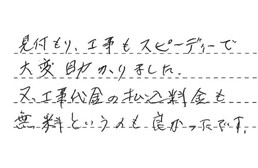 見付もり、工事もスピーディーで
大変助かりました。
又、工事代金の払込料金も
無料というのも良かったです。